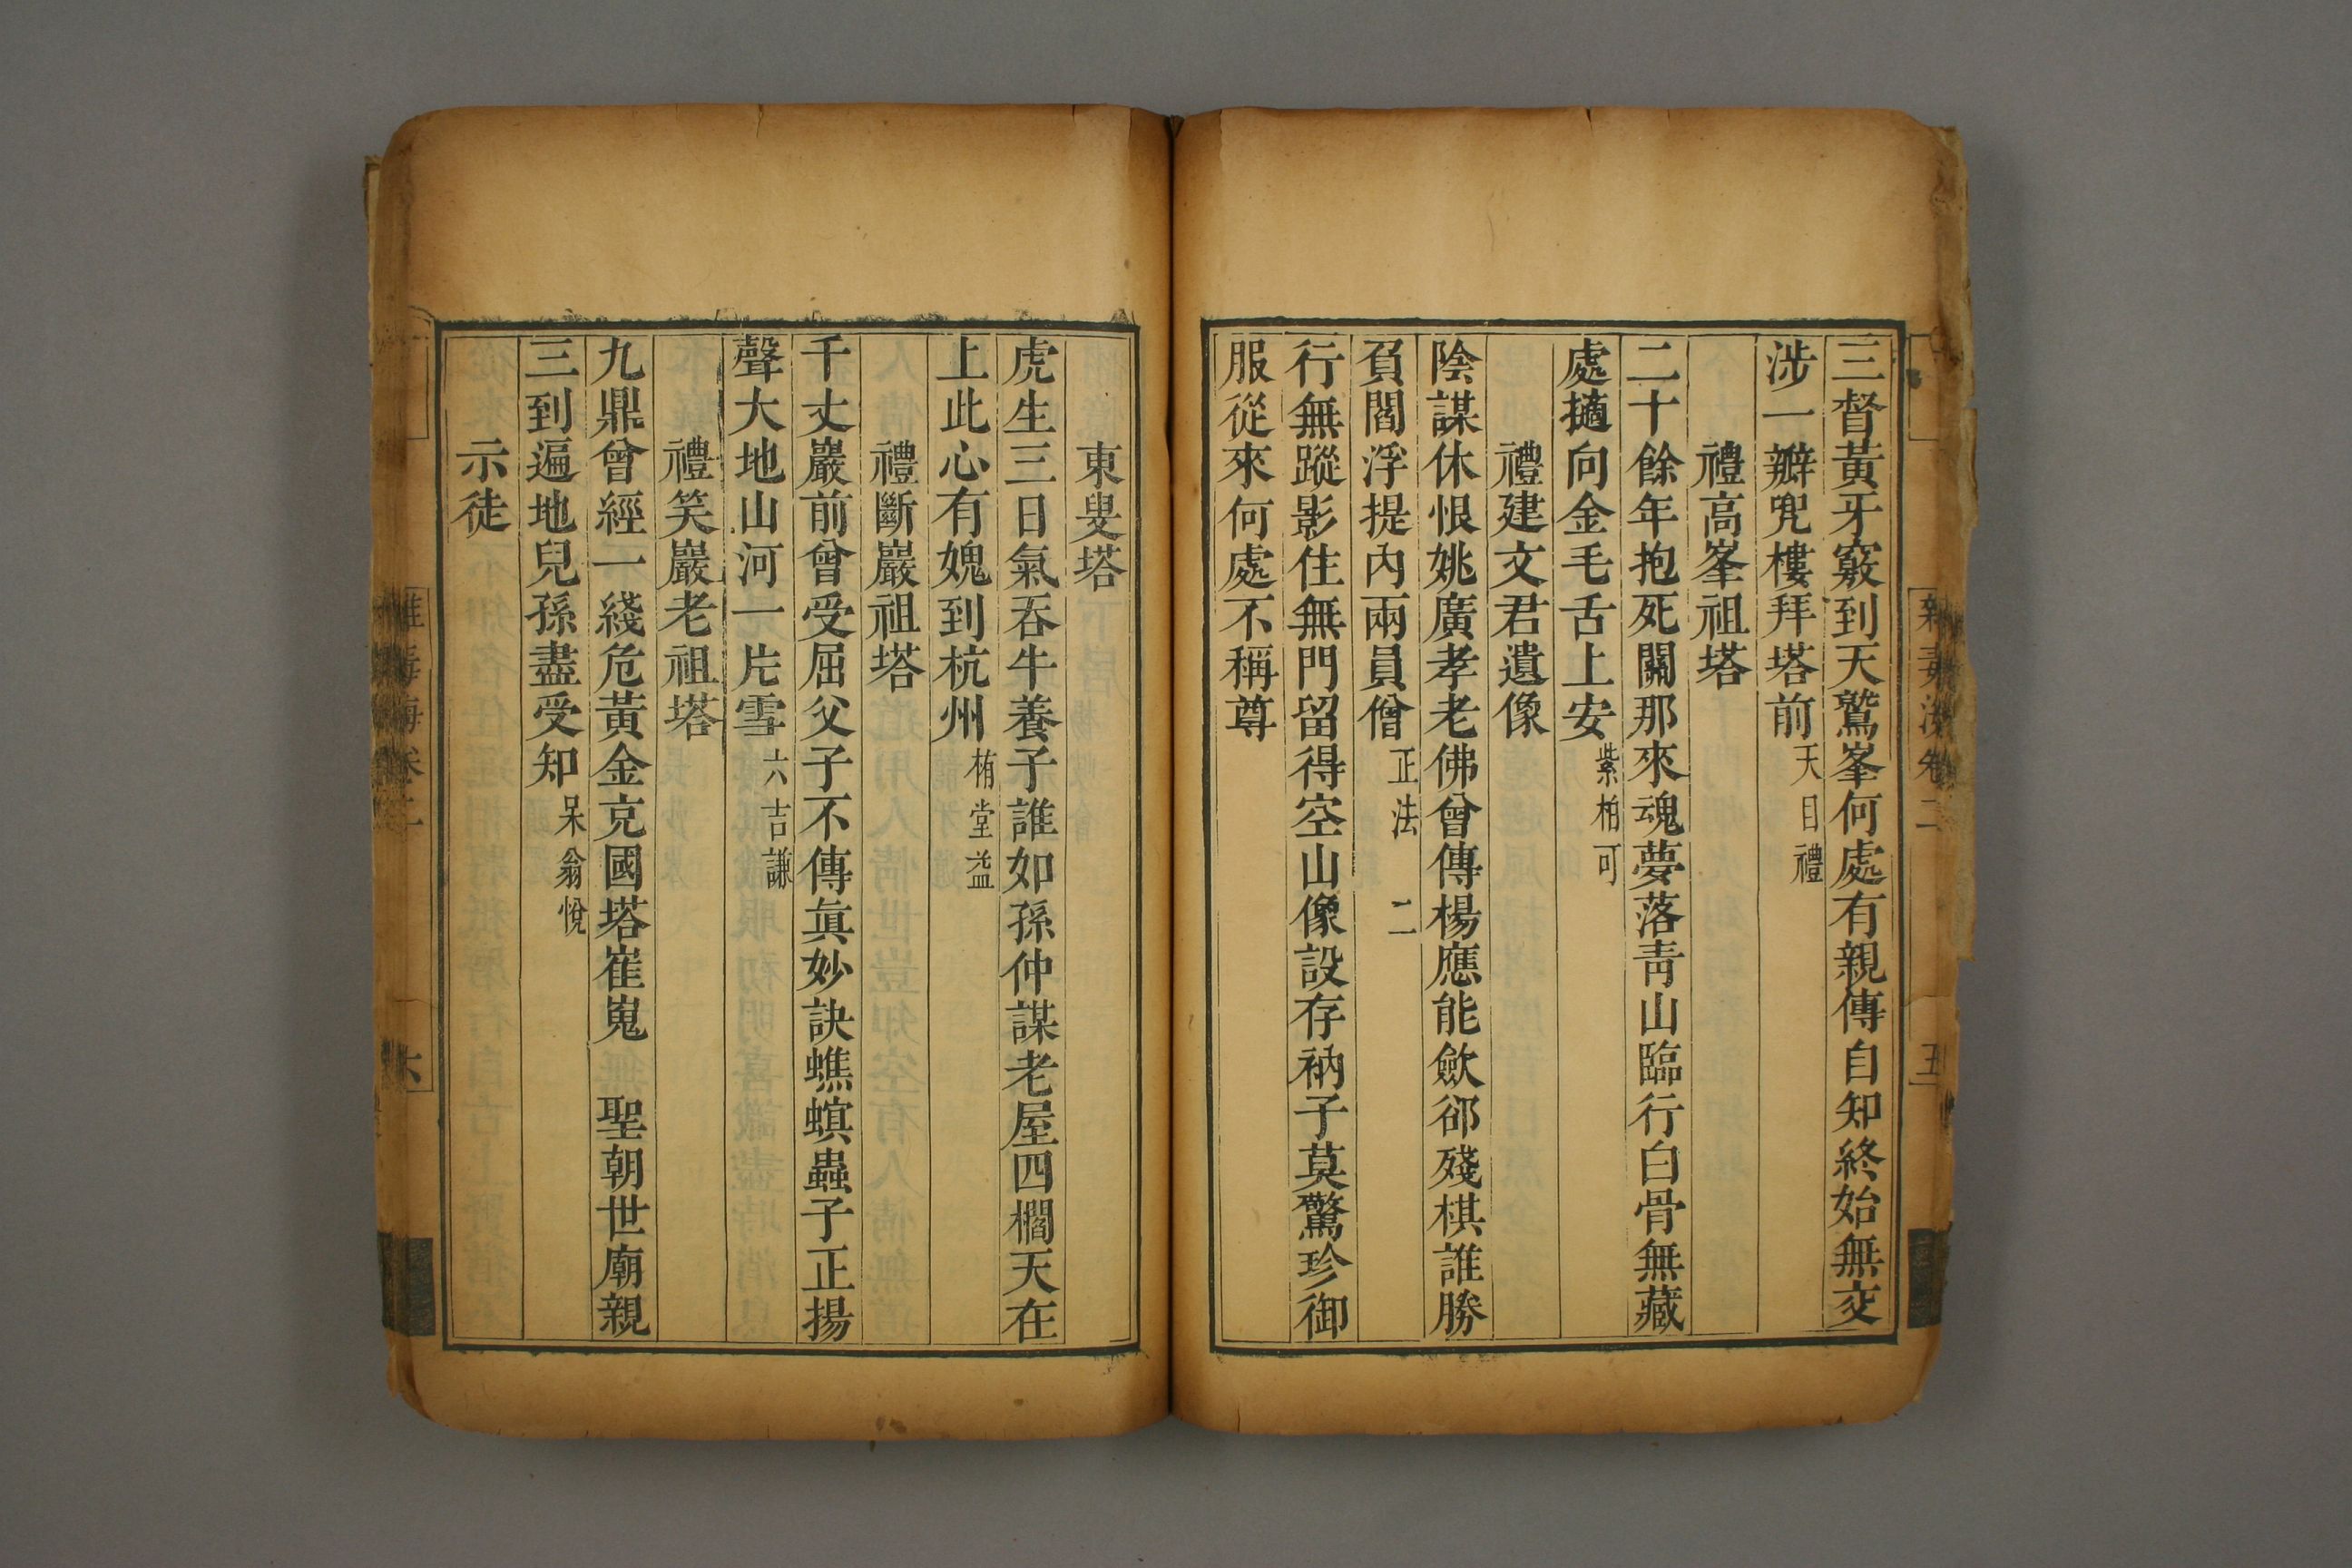 三督黃牙竅到天鷲峯何處有親傳自知終始無交
涉一瓣兜樓拜塔前 天目禮
禮高峯祖塔
二十餘年抱死關那來魂夢落靑山臨行白骨無藏
處擿向金毛舌上安 紫柏可
禮建文君遺像
陰謀休恨姚廣孝老佛曾傳楊應能歛郤殘棋誰勝
負閻浮提內兩員僧 正法 二
行無蹤影住無門留得空山像設存衲子莫驚珍御
服從來何處不稱尊
東叟塔
虎生三日氣吞牛養子誰如孫仲謀老屋四櫩天在
上此心有媿到杭州 栯堂益
禮斷巖祖塔
千丈巖前曾受屈父子不傳眞妙訣蟭螟蟲子正揚
聲大地山河一片雪 六吉謙
禮笑巖老祖塔
九鼎曾經一綫危黃金克國塔崔嵬 聖朝世廟親
三到遍地兒孫盡受知 呆翁悅
示徒
卷二
六